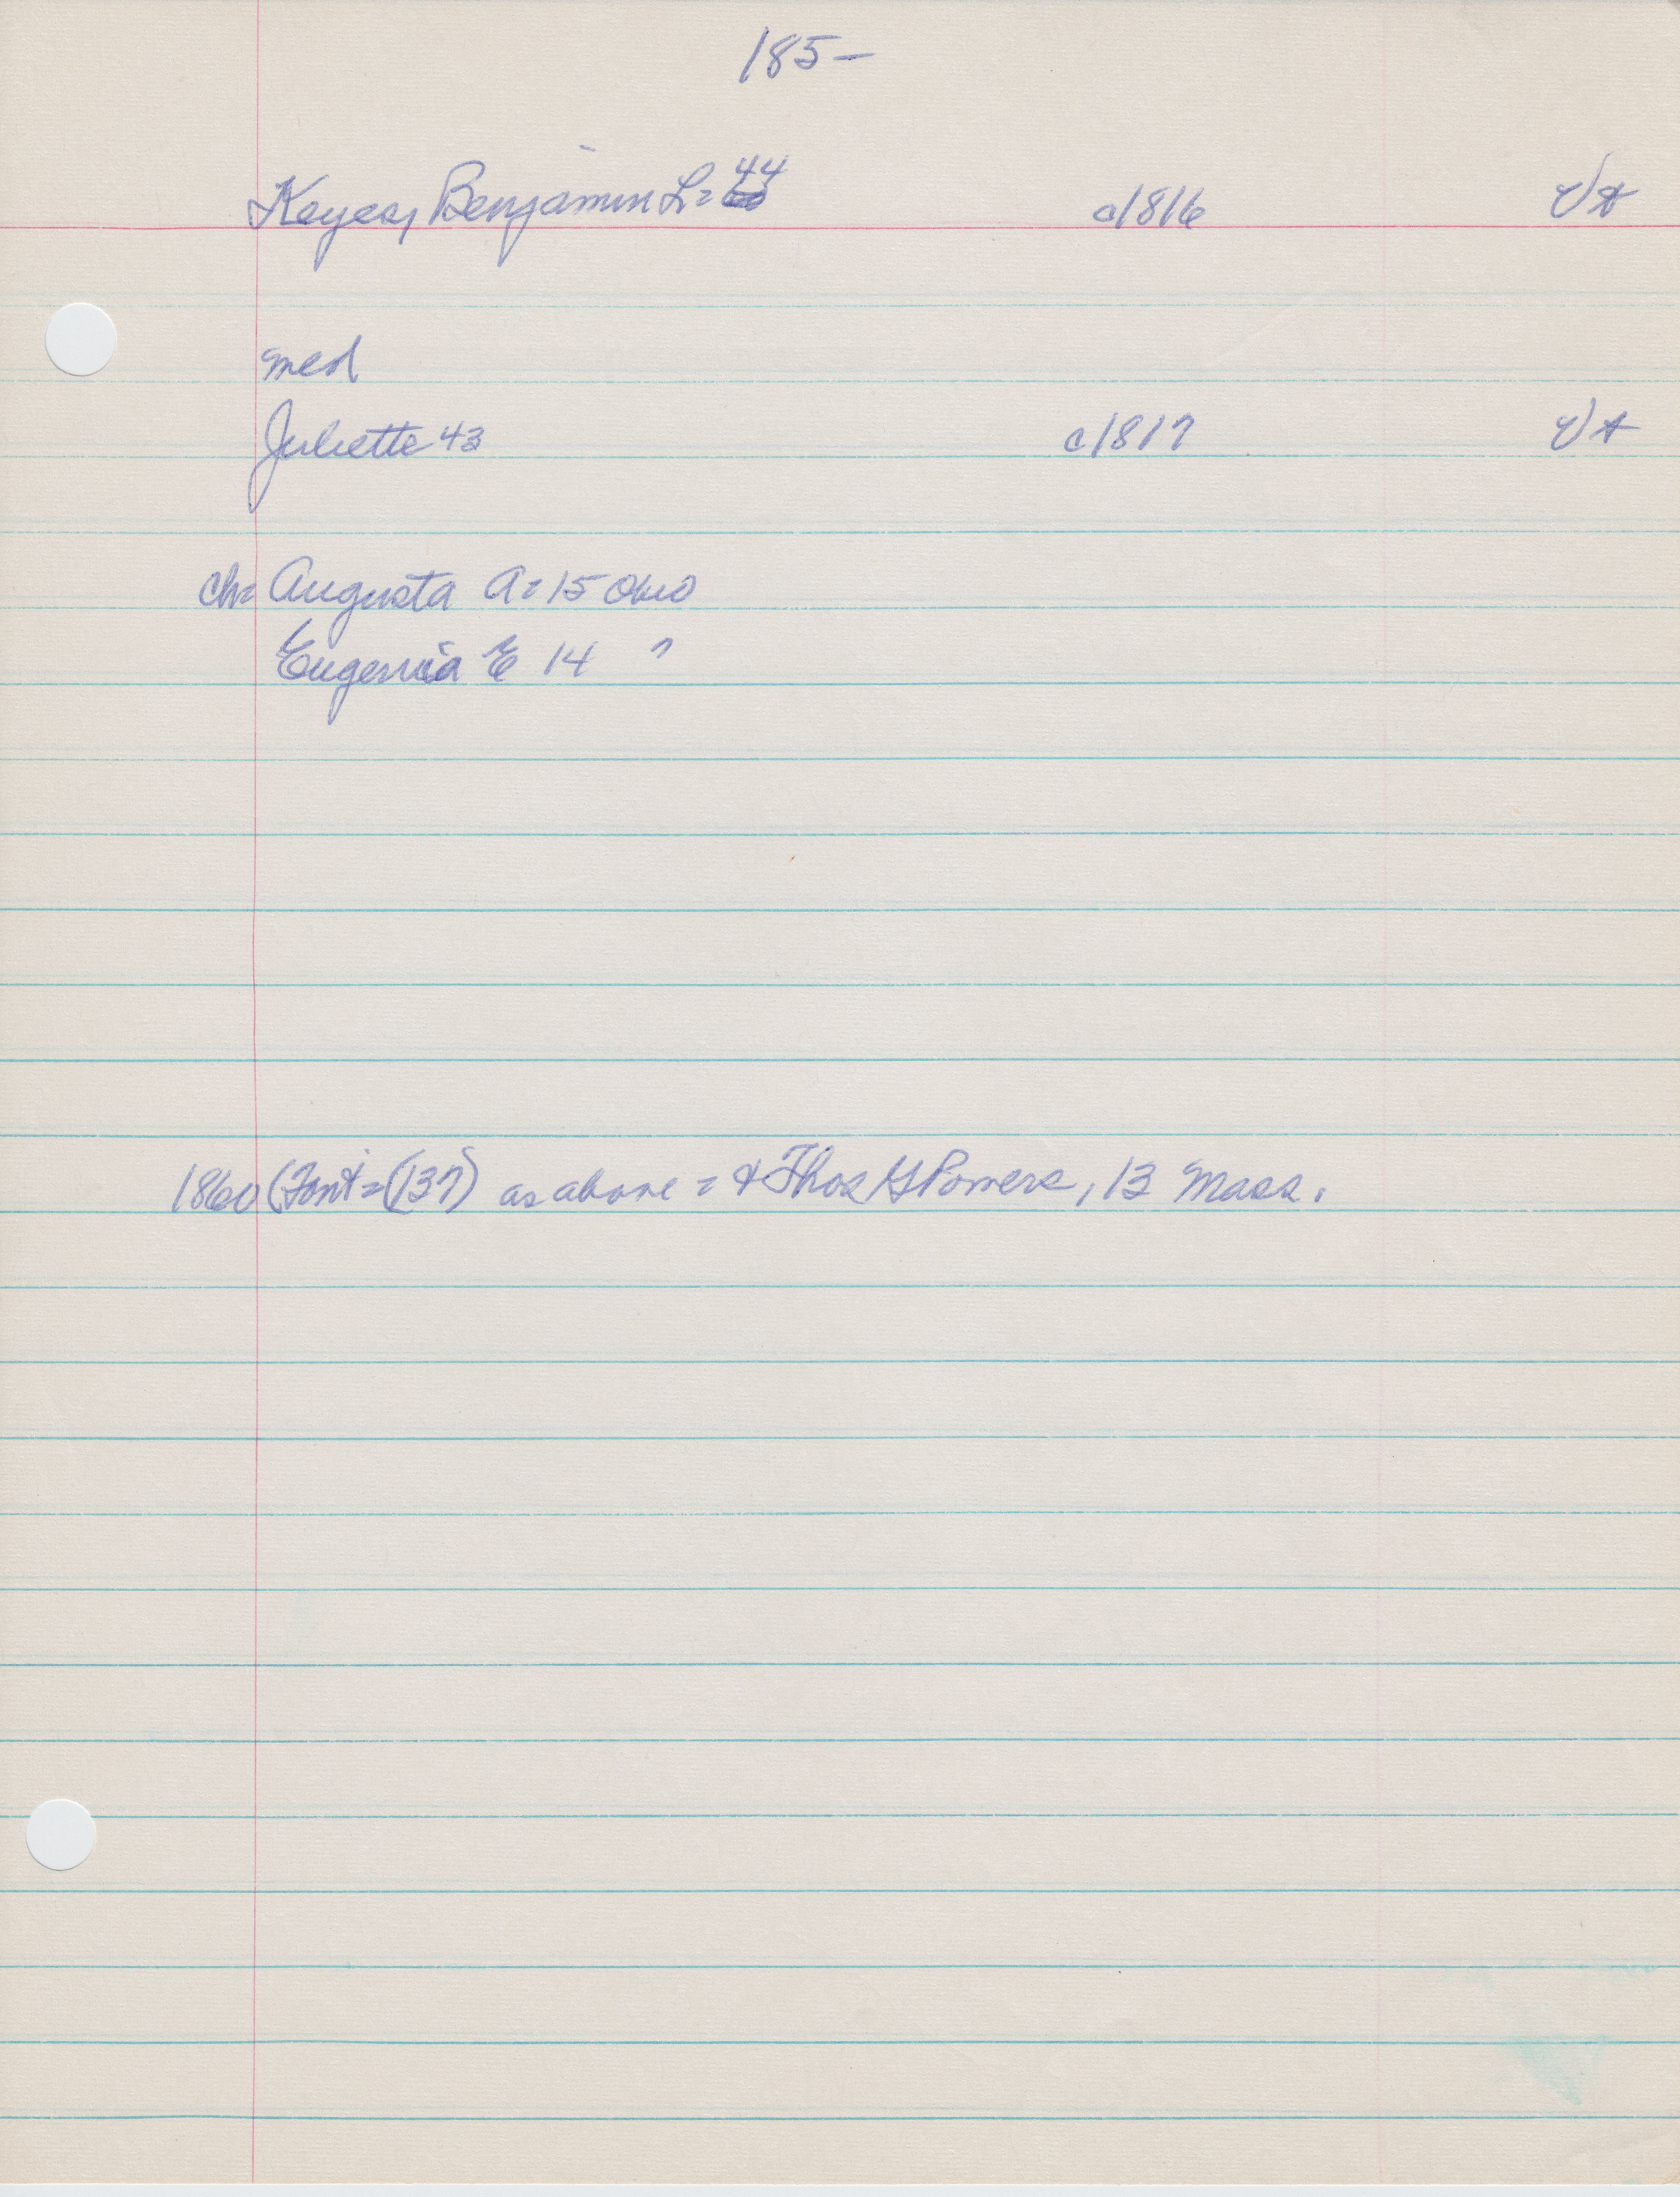 185-
Keyes, Benjamin L = 44 c1816 Vt
med
Juliette 43 c1817 Vt
ch = Augusta A = 15 Ohio
Eugenia E 14 "
1860 (Font = (137) as above = & Thos G Powers, 13 Mass.